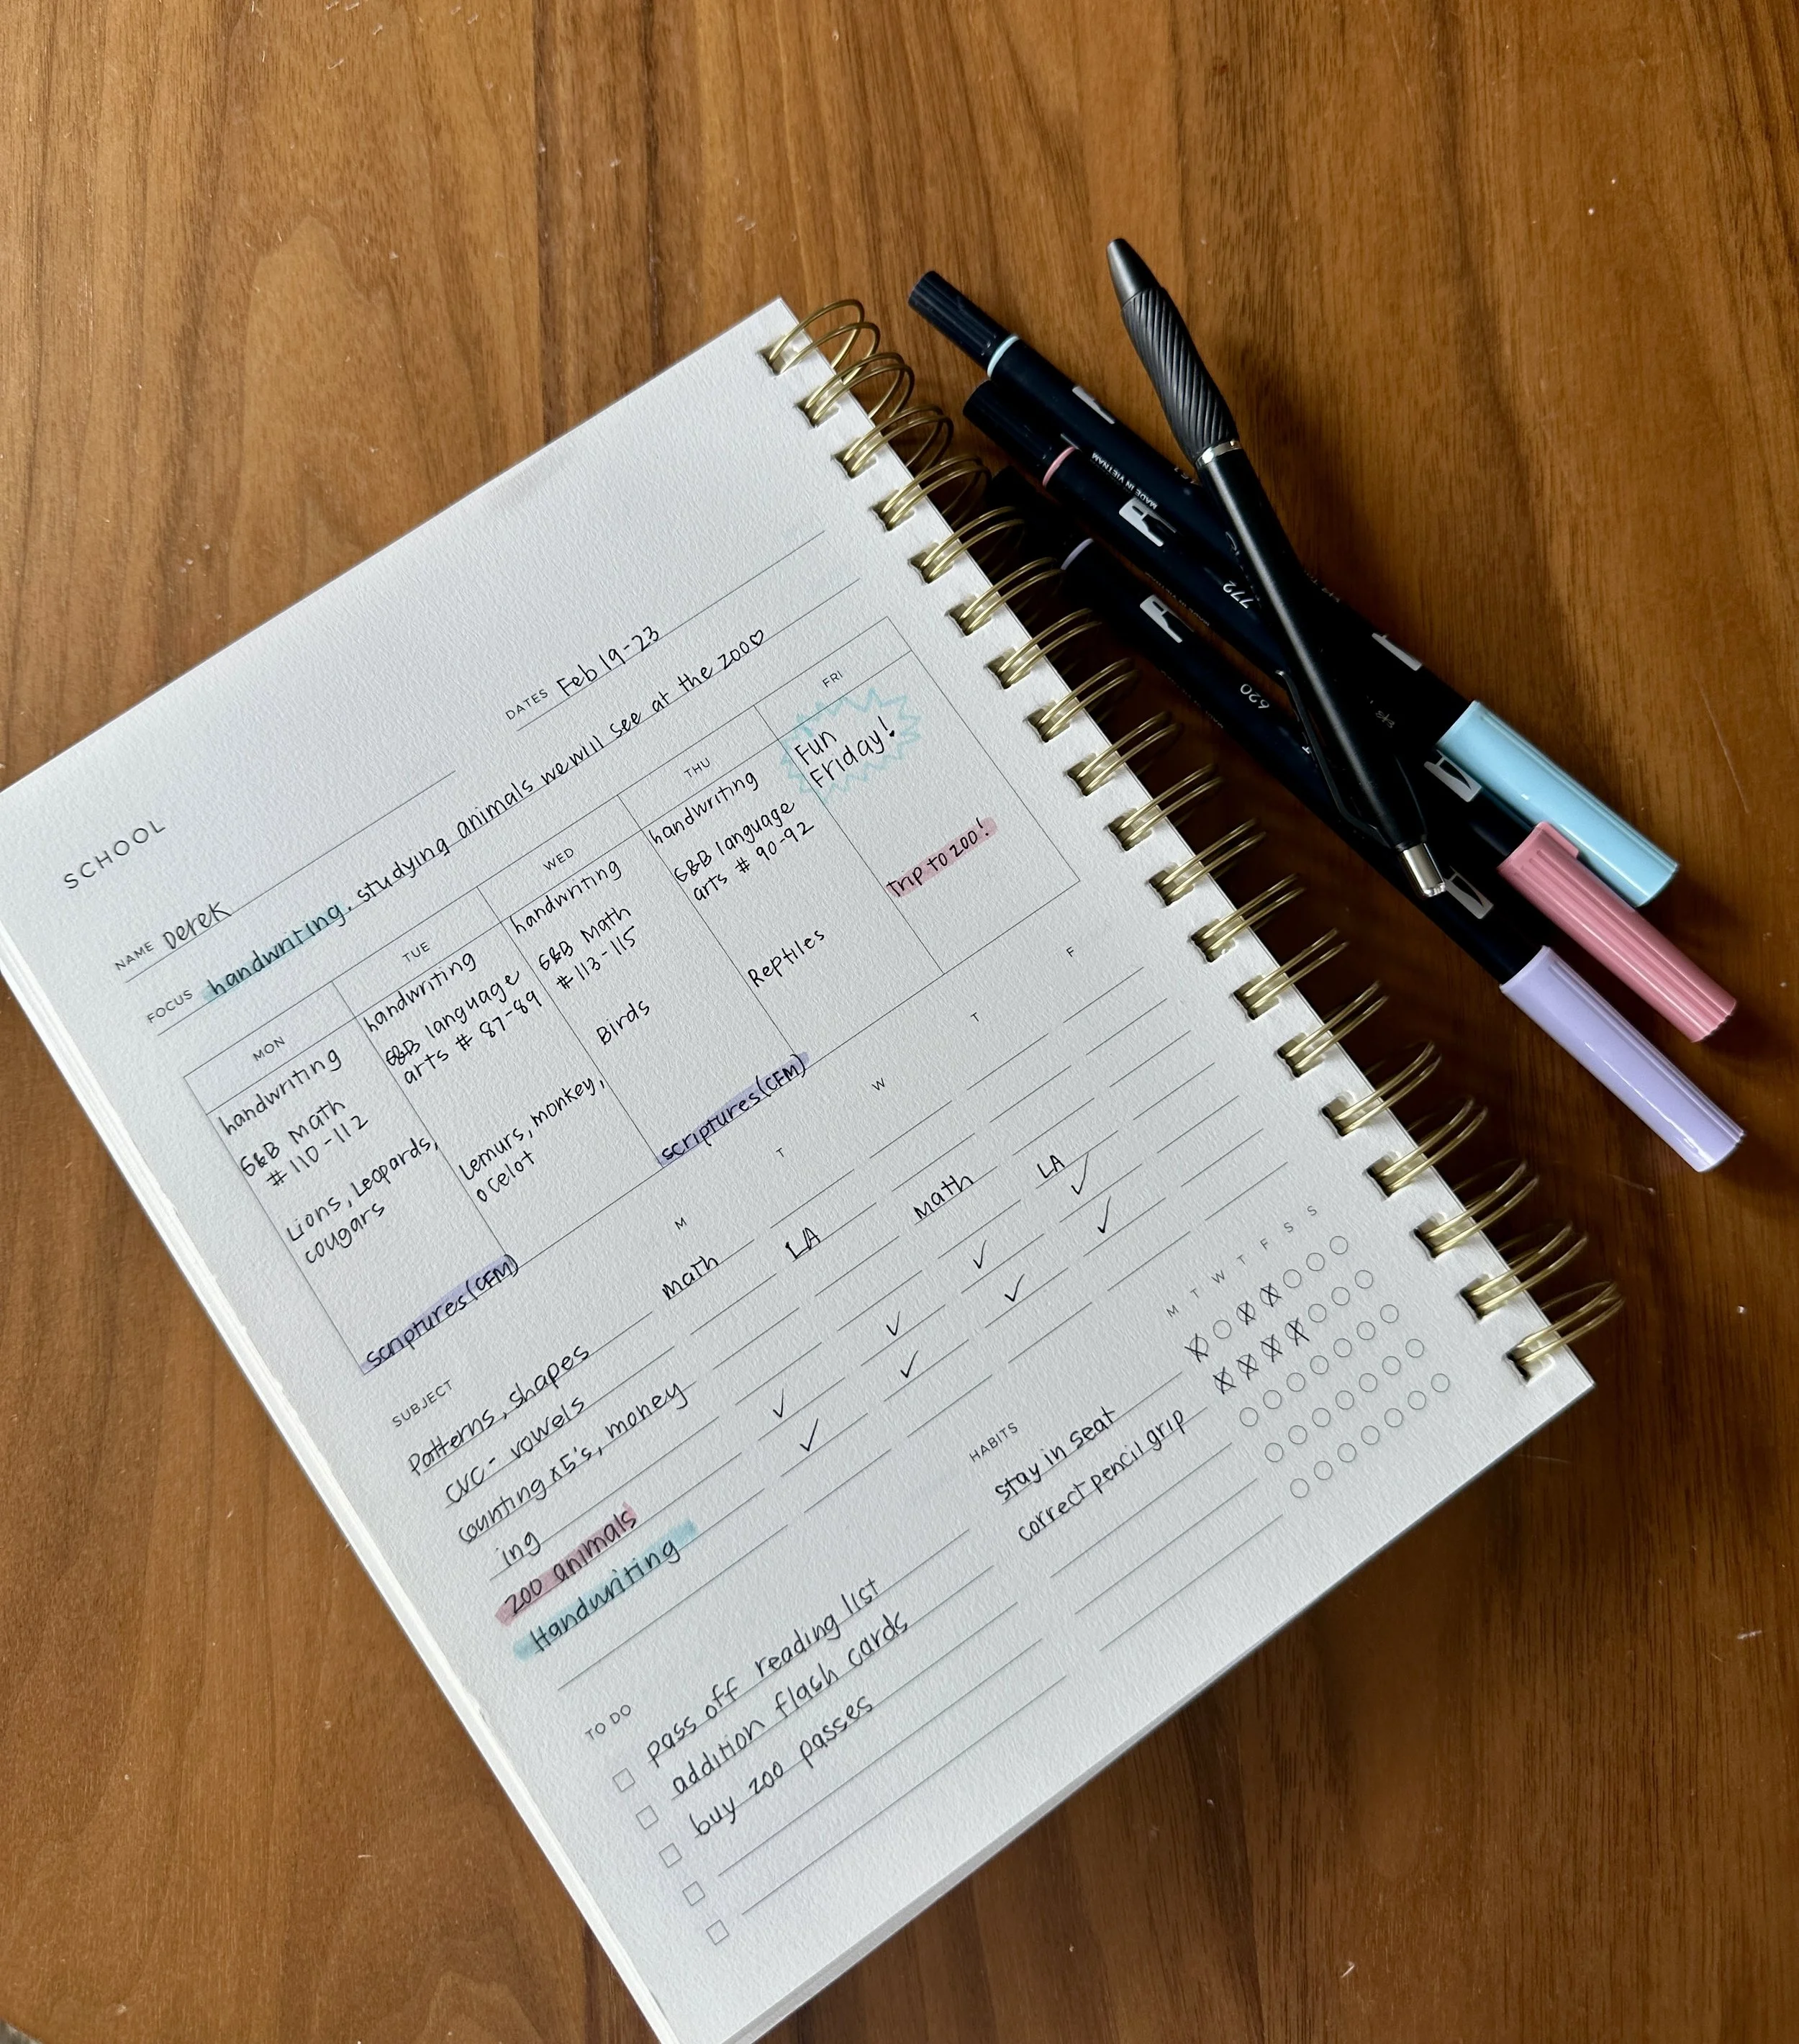 SCHOOL
NAME Derek
DATES Feb 19-23
FOCUS handwriting, studying animals we will see at the zoo♡
MON
handwriting
G&B Math
# 110-112
Lions, Leopards,
cougars
scriptures (CFM)
TUE
handwriting
G&B language
arts # 87-89
Lemurs, monkey,
ocelot
WED
handwriting
G&B Math
# 113-115
Birds
scriptures (CFM)
THU
handwriting
G&B language
arts # 90-92
Reptiles
FRI
Fun
Friday!
Trip to zoo!
SUBJECT M T W T F
Patterns, shapes math LA Math LA
CVC - vowels
counting x 5's, money ✓ ✓ ✓
ing
zoo animals ✓ ✓ ✓ ✓
Handwriting ✓ ✓ ✓ ✓
TO DO
pass off reading list
addition flash cards
buy zoo passes
HABITS M T W T F S S
stay in seat
correct pencil grip
MADE IN VIETNAM
772
620